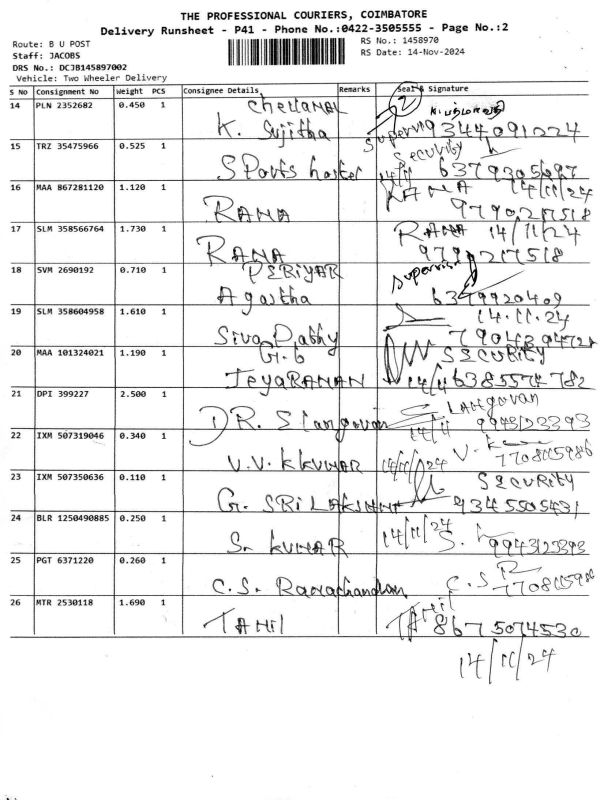 THE PROFESSIONAL COURIERS, COIMBATORE
Delivery Runsheet - P41 - Phone No.:0422-3505555 - Page No.:2
Route: B U POST
RS No.: 1458970
Staff: JACOBS
RS Date: 14-Nov-2024
DRS No.: DCJB145897002
Vehicle: Two Wheeler Delivery
S No Consignment No Weight PCS Consignee Details Remarks Seal & Signature
14 PLN 2352682 0.450 1 K. Sujitha 9344091224
15 TRZ 35475966 0.525 1 Security
SPorts hostel 14/11 6379305697
16 MAA 867281120 1.120 1 RANA 14/11/24
RANA 9790217518
17 SLM 358566764 1.730 1 RANA 14/11/24
RANA 9790217518
18 SVM 2690192 0.710 1 PERIYAR Supervisor
Agastha 6379920409
19 SLM 358604958 1.610 1 14.11.24
Siva 
20 MAA 101324021 1.190 1 G.b SECURITY
JeyaRAMAN 14/11 6385574782
21 DPI 399227 2.500 1 Langovan
DR. S langovan 14/11 9943123393
22 IXM 507319046 0.340 1 V. K
V.V. KKUMAR 14/11/24 7708115986
23 IXM 507350636 0.110 1 SECURITY
G. SRI LAKSHMI 9345505431
24 BLR 1250490885 0.250 1 14/11/24 S. K
S. KUMAR 9943123393
25 PGT 6371220 0.260 1 C.S R
C.S. Ramachandran 7708115986
26 MTR 2530118 1.690 1 TAMIL
TAMIL 8675074530
14/11/24